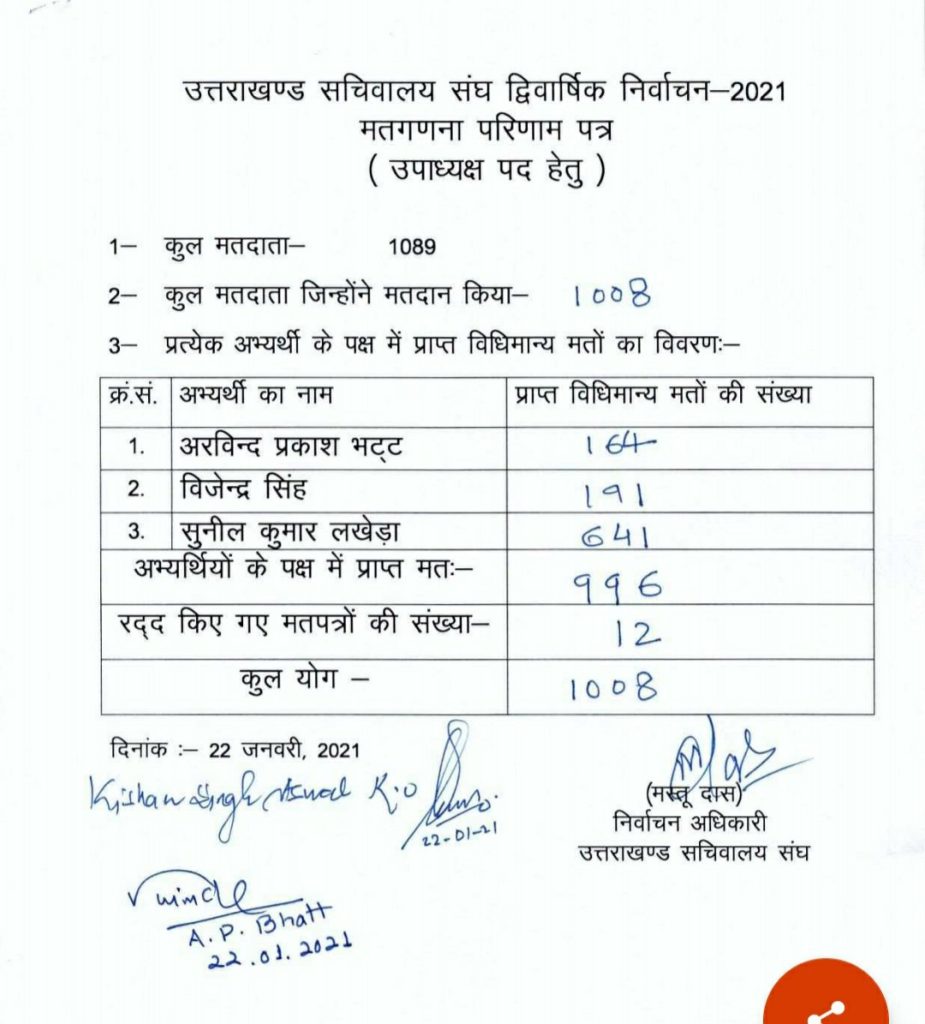 उत्तराखण्ड सचिवालय संघ द्विवार्षिक निर्वाचन–2021
मतगणना परिणाम पत्र
( उपाध्यक्ष पद हेतु )
1– कुल मतदाता– 1089
2– कुल मतदाता जिन्होंने मतदान किया– 1008
3– प्रत्येक अभ्यर्थी के पक्ष में प्राप्त विधिमान्य मतों का विवरणः–
क्रं.सं. अभ्यर्थी का नाम प्राप्त विधिमान्य मतों की संख्या
1. अरविन्द प्रकाश भट्ट 164
2. विजेन्द्र सिंह 191
3. सुनील कुमार लखेड़ा 641
अभ्यर्थियों के पक्ष में प्राप्त मतः– 996
रद्द किए गए मतपत्रों की संख्या– 12
कुल योग – 1008
दिनांक :– 22 जनवरी, 2021
Kishan Singh
22-01-21
(मस्तू दास)
निर्वाचन अधिकारी
उत्तराखण्ड सचिवालय संघ
A.P. Bhatt
22.01.2021